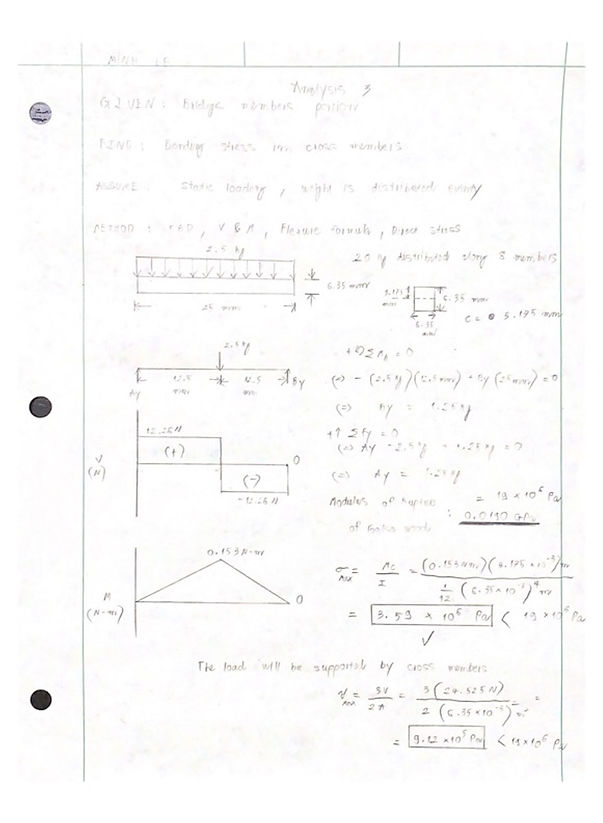 MINH LE
Analysis 3
GIVEN: Bridge members portion
FIND: Bending stress in cross members
ASSUME: Static loading, weight is distributed evenly
METHOD: FBD, V & M, Flexure Formula, Direct stress
2.5 kg
20 kg distributed along 8 members
6.35 mm
25 mm
3.175 mm
6.35 mm
6.35 mm
c = 3.175 mm
2.5 kg
+↺ΣM_A = 0
Ay
12.5 mm
12.5 mm
By
(=) -(2.5 kg)(12.5 mm) + By(25 mm) = 0
(=) By = 1.25 kg
+↑ΣFy = 0
12.26 N
(+)
(=) Ay - 2.5 kg + 1.25 kg = 0
V
(N)
0
(-)
(=) Ay = 1.25 kg
-12.26 N
Modulus of Rupture
of Balsa wood
: = 19 × 10^6 Pa
0.0190 GPa
0.153 N-m
σ_MAX = Mc/I = (0.153 Nm)(3.175 × 10^-3)m / (1/12 (6.35 × 10^-3)^4 m)
M
(N-m)
0
= 3.59 × 10^6 Pa < 19 × 10^6 Pa
✓
The load will be supported by cross members
MAX = 3V/2A = 3(24.525 N) / 2(6.35 × 10^-3)^2 m² =
= 9.12 × 10^5 Pa < 19 × 10^6 Pa